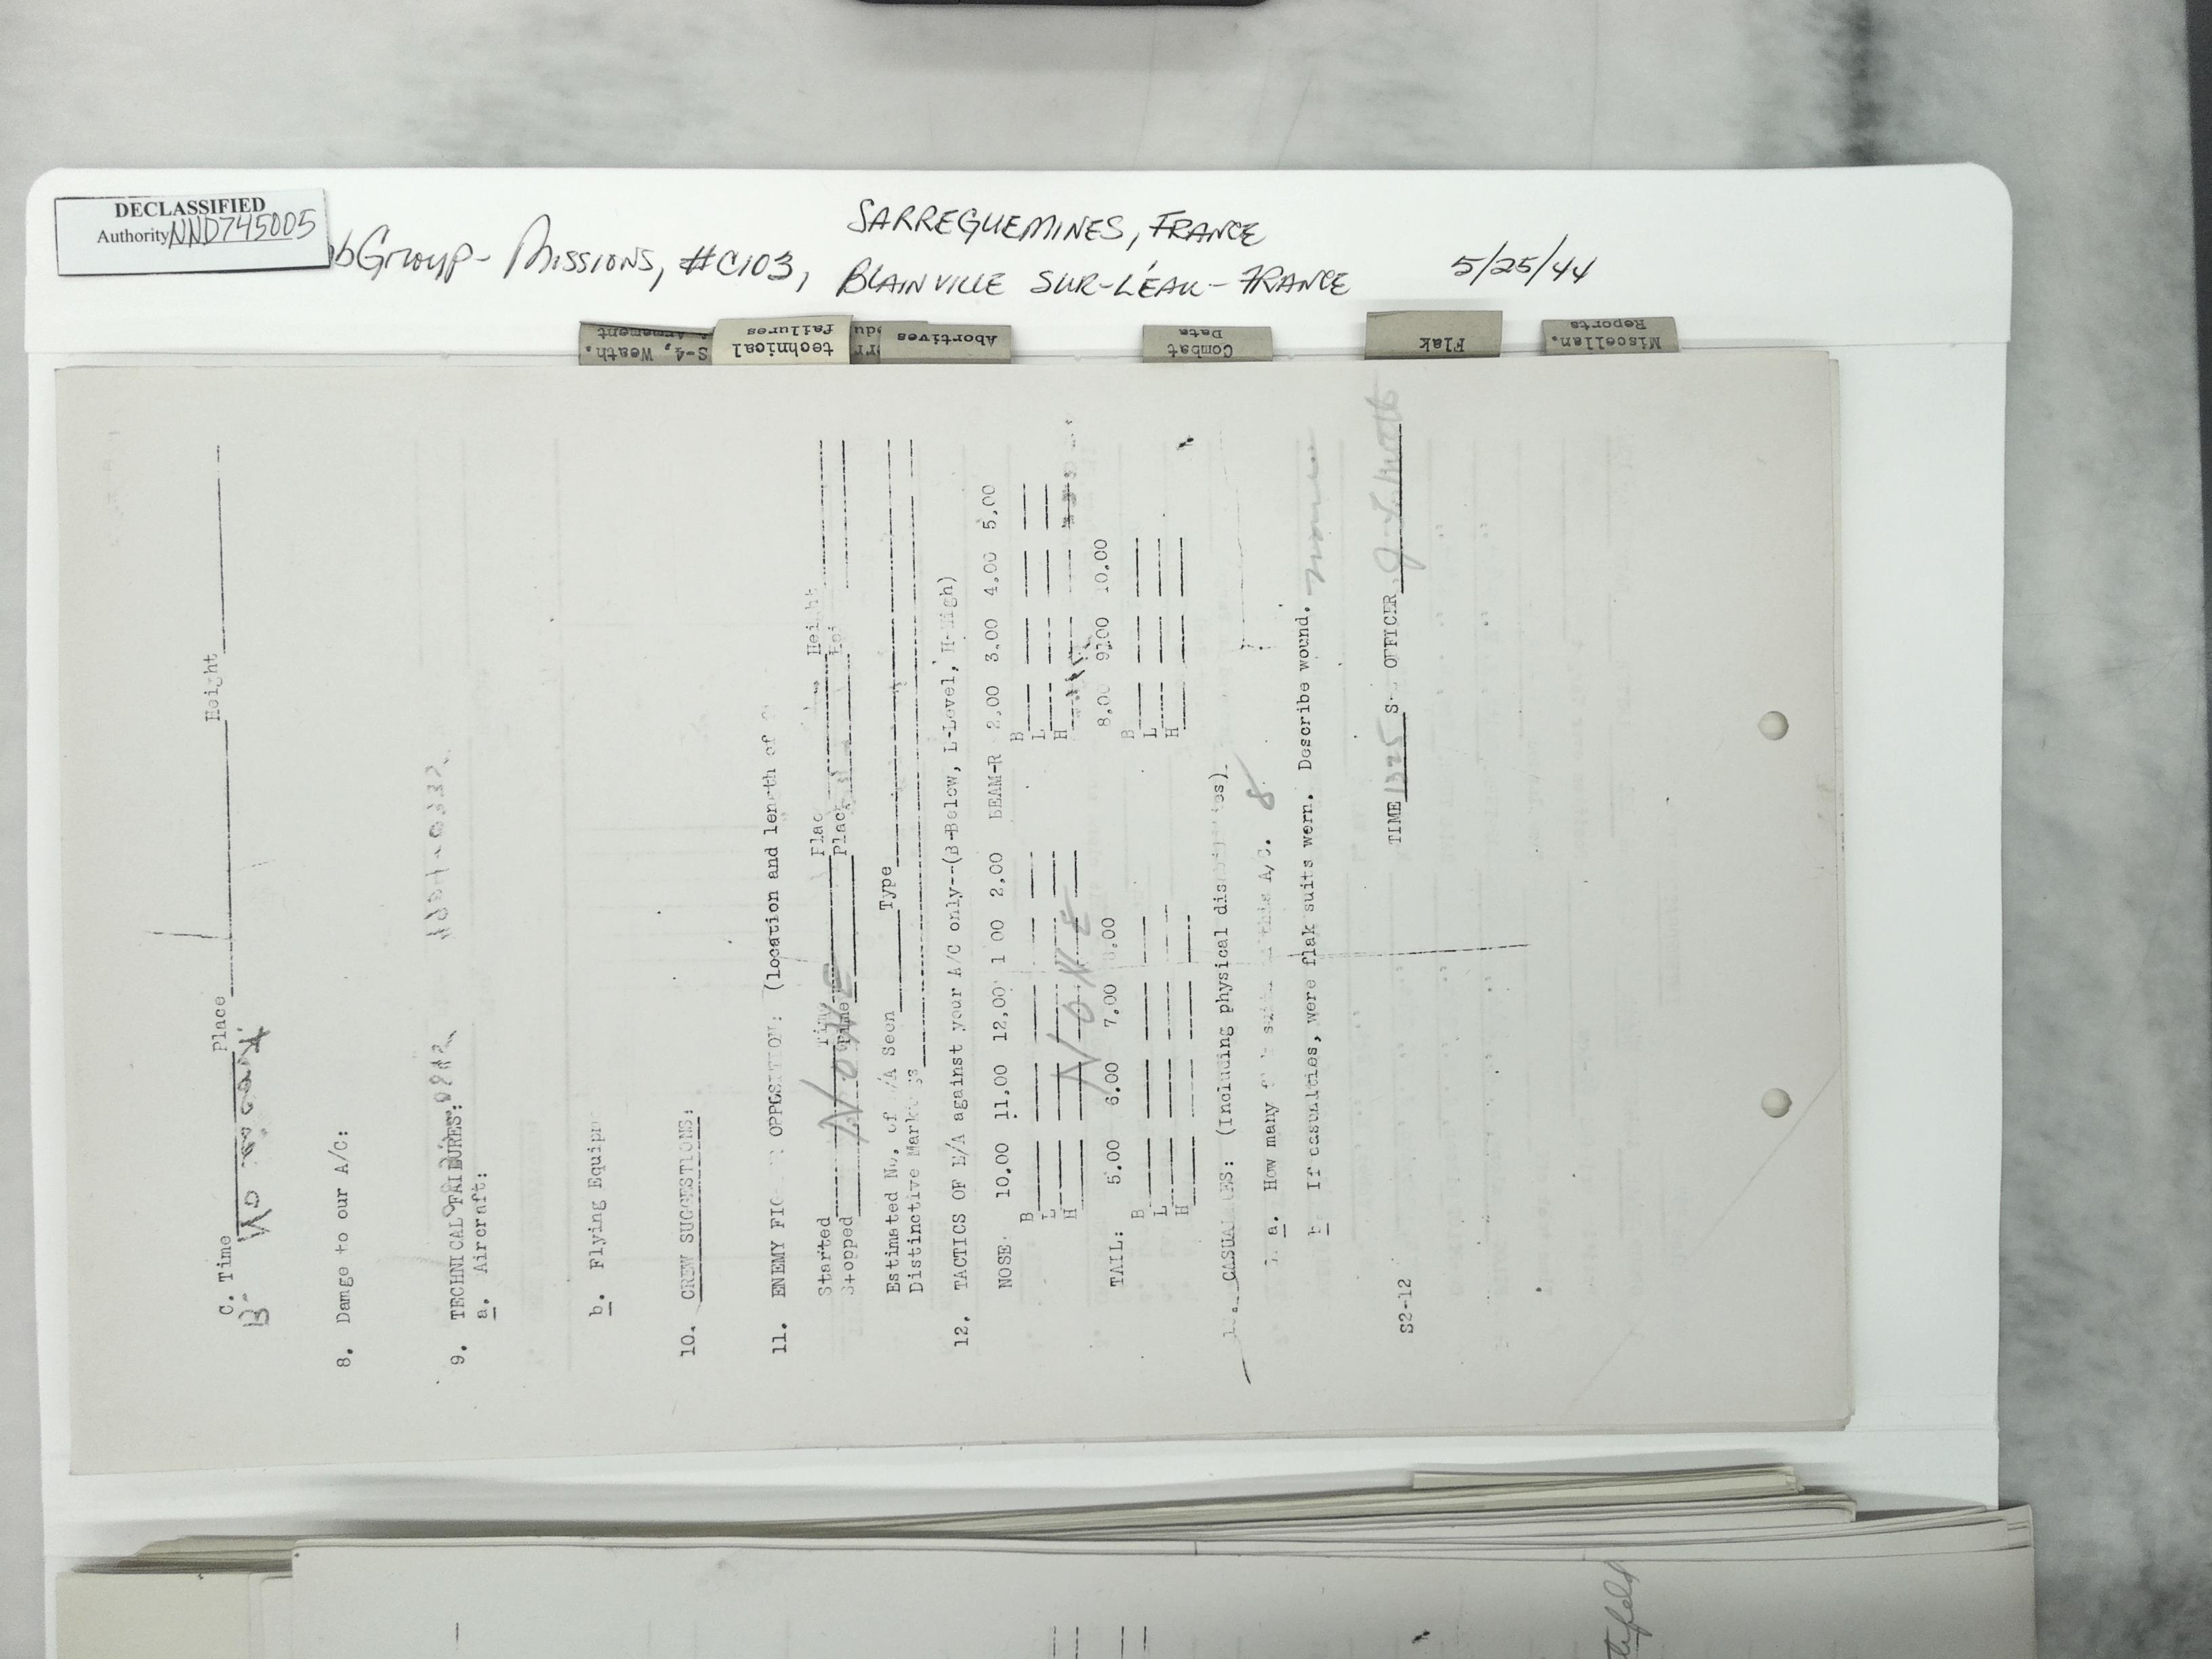 DECLASSIFIED
Authority NND745005
bGroup- Missions, #C103,
SARREGUEMINES, FRANCE
BLAINVILLE SUR-L'EAU- FRANCE
5/25/44
S-4, Weath.
Armement
technical
failures
Abortives
Combat
Data
Flak
Miscellan.
Reports
C. Time Place Height
B-
8. Damage to our A/C:
9. TECHNICAL FAILURES:
a. Aircraft:
b. Flying Equip
10. CREW SUGGESTIONS:
11. ENEMY OPPOSITION: (location and length of
Started Time Plac Height
Stopped Time Place
NONE
Estimated No. of E/A Seen Type
Distinctive Mark
12. TACTICS OF E/A against your A/C only--(B-Below, L-Level, H-High)
NOSE: 10.00 11.00 12.00 1 00 2.00 BEAM-R 2.00 3.00 4.00 5.00
B B
L L
H H
NONE
TAIL: 5.00 6.00 7.00 8.00 8.00 9.00 10.00
B B
L L
H H
CASUALTIES: (Including physical
a. How many this A/C. 8
b. If casualties, were flak suits worn. Describe wound.
TIME S- OFFICER
S2-12